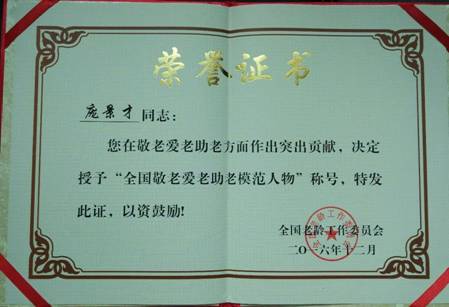 荣誉证书
庞景才同志：
您在敬老爱老助老方面作出突出贡献，决定
授予“全国敬老爱老助老模范人物”称号，特发
此证，以资鼓励！
全国老龄工作委员会
二〇一六年十二月